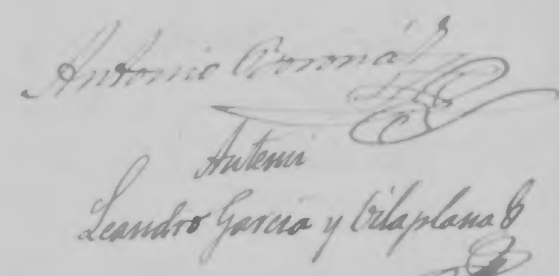 Antonio Boroná
Antemi
Leandro Garcia y Vilaplana